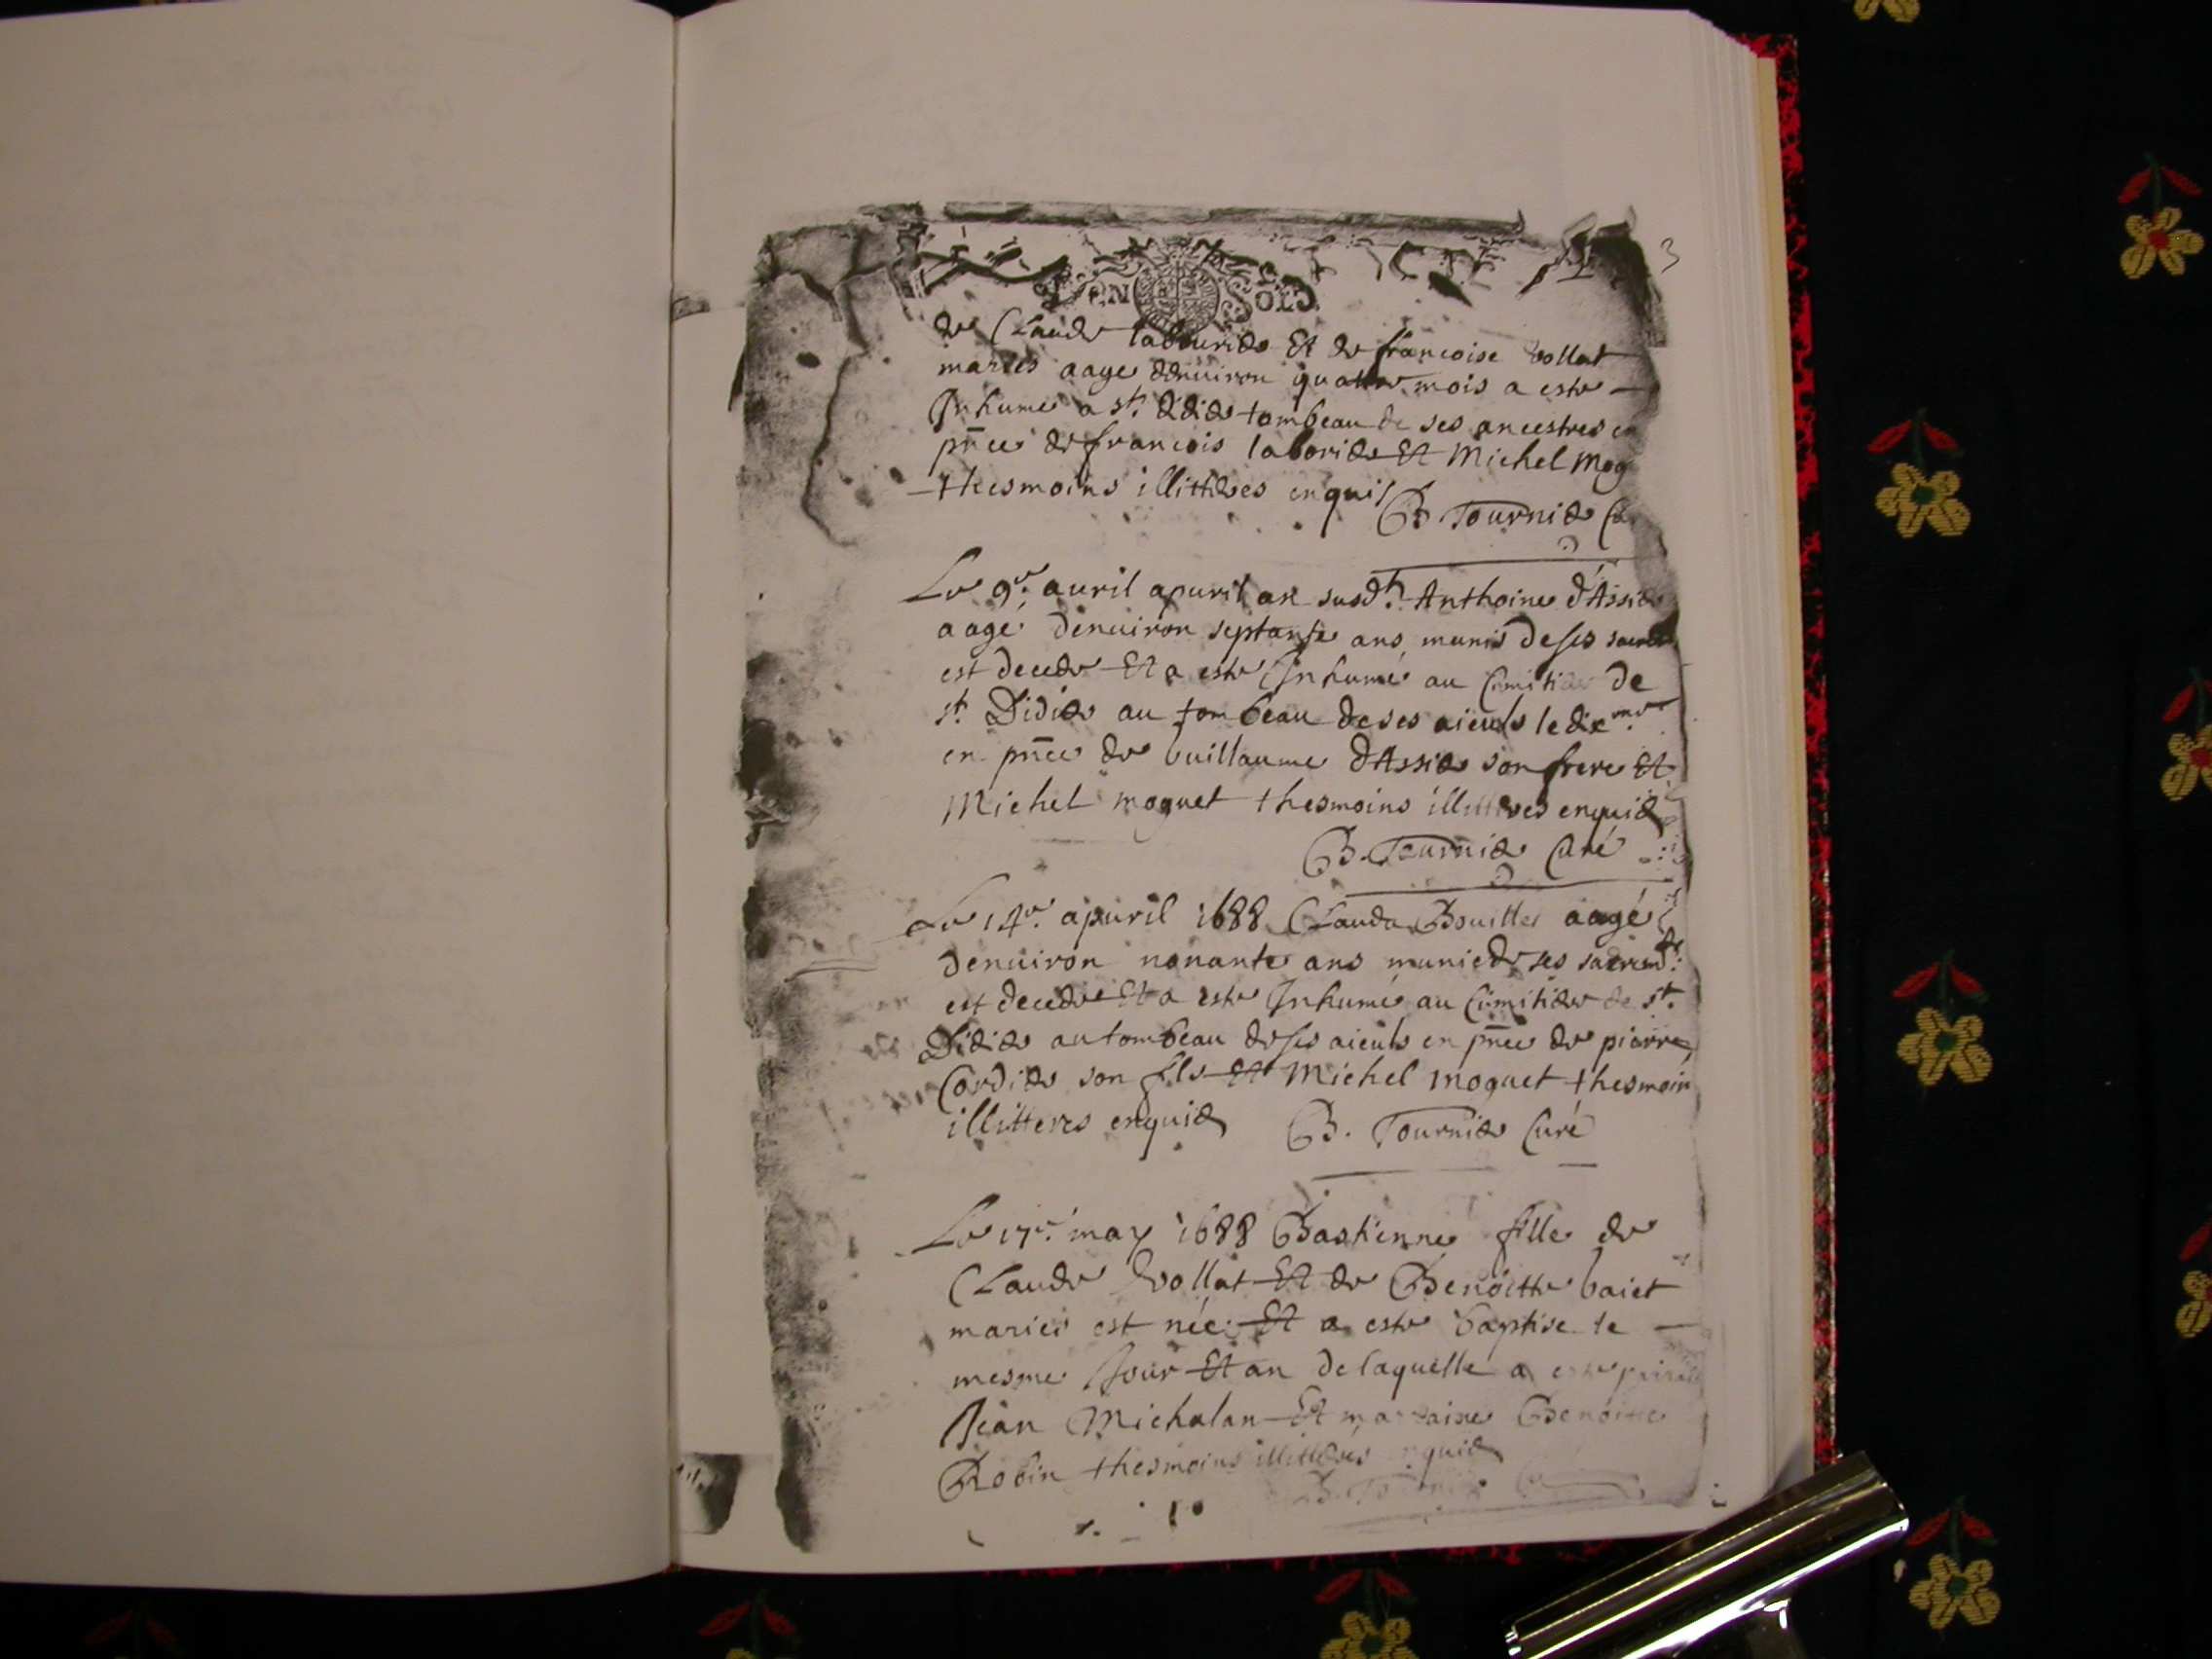 3
SOLS
de Claude labourier Et de francoise vollat
maries aage denuiron quattre mois a este
Inhume a st. didier tombeau de ses ancestres en
pnce de francois laborier Et Michel Mog
thesmoins illitteres enquis
B. Tournier Cu
Le 9e. auril apuril an susdt. Anthoine d'Assier
aagé denuiron septante ans, munis de ses sacre
est decede Et a este Inhumé au Cimitier de
st. Didier au tombeau de ses aieuls le dixme.
en pnce de Guillaume d'Assier son frere Et
Michel moguet thesmoins illitteres enquis
B. Tournier Curé
Le 14e. apuril 1688 Clauda Bouillet aagé
denuiron nonante ans munie de ses sacremts.
est decede Et a este Inhumé au Cimitier de st.
Didier au tombeau de ses aieuls en pnce de pierre
Cordier son fils Et Michel moguet thesmoin
illitteres enquis B. Tournier Curé
Le 17e. may 1688 Bastienne fille de
Claude Vollat Et de Benoitte baiet
maries est née Et a este baptise le
mesme Jour Et an de laquelle a este
Jean Michalan Et marraine Benoitte
Robin thesmoins illitterés enquis
B. Tournier